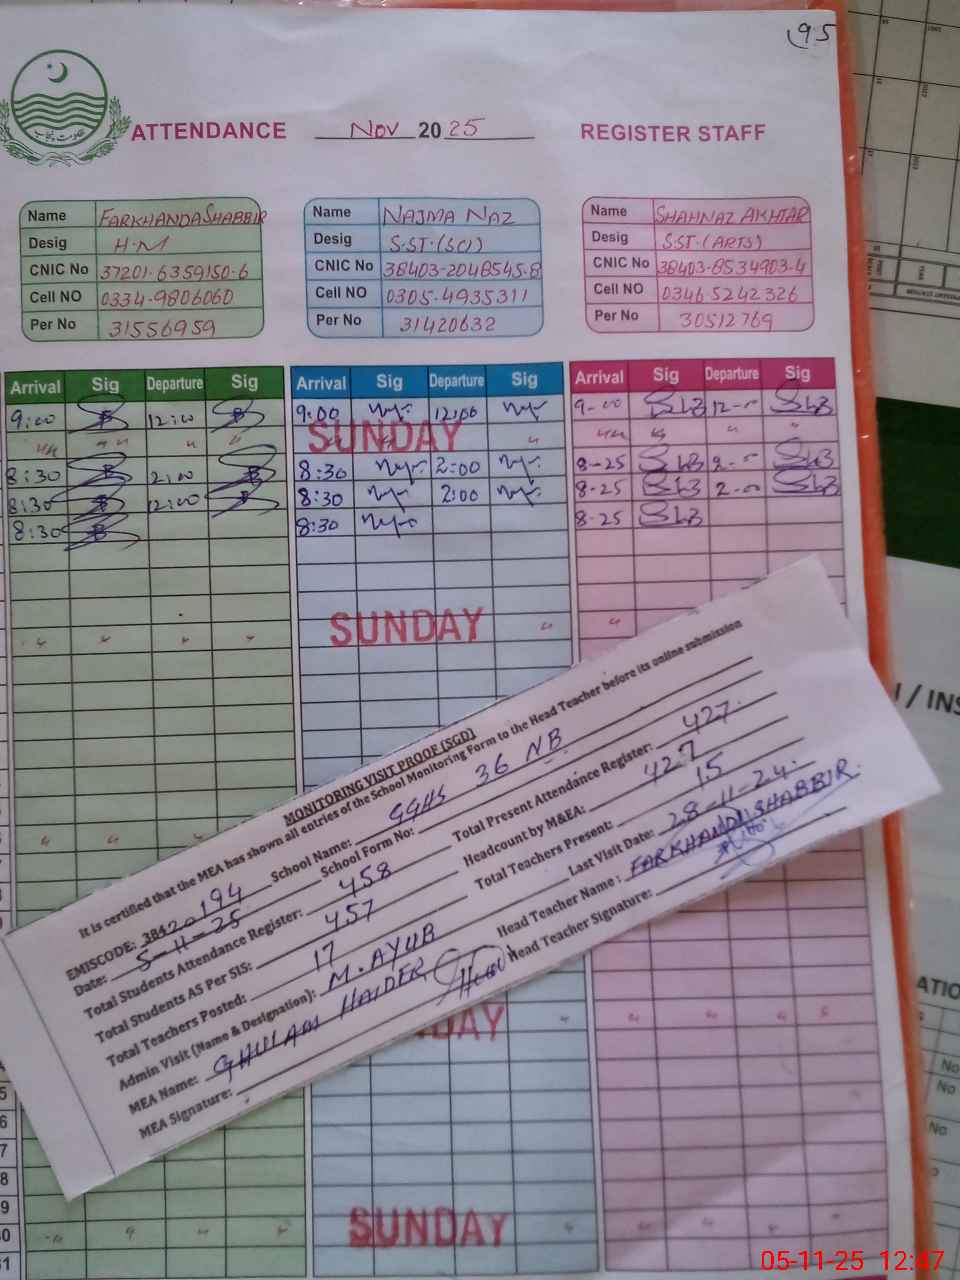 95
حکومت پنجاب
ATTENDANCE Nov 2025 REGISTER STAFF
Name FARKHANDA SHABBIR
Desig H.M
CNIC No 37201-6359150-6
Cell NO 0334-9806060
Per No 31556959
Name NAJMA NAZ
Desig S.ST.(SCI)
CNIC No 38403-2048545-8
Cell NO 0305-4935311
Per No 31420632
Name SHAHNAZ AKHTAR
Desig S.ST.(ARTS)
CNIC No 38403-8534903-4
Cell NO 0346 5242326
Per No 30512769
Arrival Sig Departure Sig Arrival Sig Departure Sig Arrival Sig Departure Sig
9:00 12:00 9:00 12:00 9-00 12-00
SUNDAY
8:30 2:00 8:30 2:00 8-25 2-00
8:30 12:00 8:30 2:00 8-25 2-00
8:30 8:30 8-25
SUNDAY
MONITORING VISIT PROOF (SGD)
It is certified that the MEA has shown all entries of the School Monitoring Form to the Head Teacher before its online submission
EMISCODE: 38420194 School Name: GGHS 36 NB
Date: 5-11-25 School Form No:
Total Students Attendance Register: 458 Total Present Attendance Register: 427
Total Students AS Per SIS: 457 Headcount by M&EA: 427
Total Teachers Posted: 17 Total Teachers Present: 15
Admin Visit (Name & Designation): M. AYUB Last Visit Date: 28-11-24
MEA Name: GHULAM HAIDER Head Teacher Name: FARKHANDA SHABBIR
MEA Signature: Head Teacher Signature:
DAY
SUNDAY
I / INS
ATIO
No
No
No
5
6
7
8
9
30
31
05-11-25 12:47